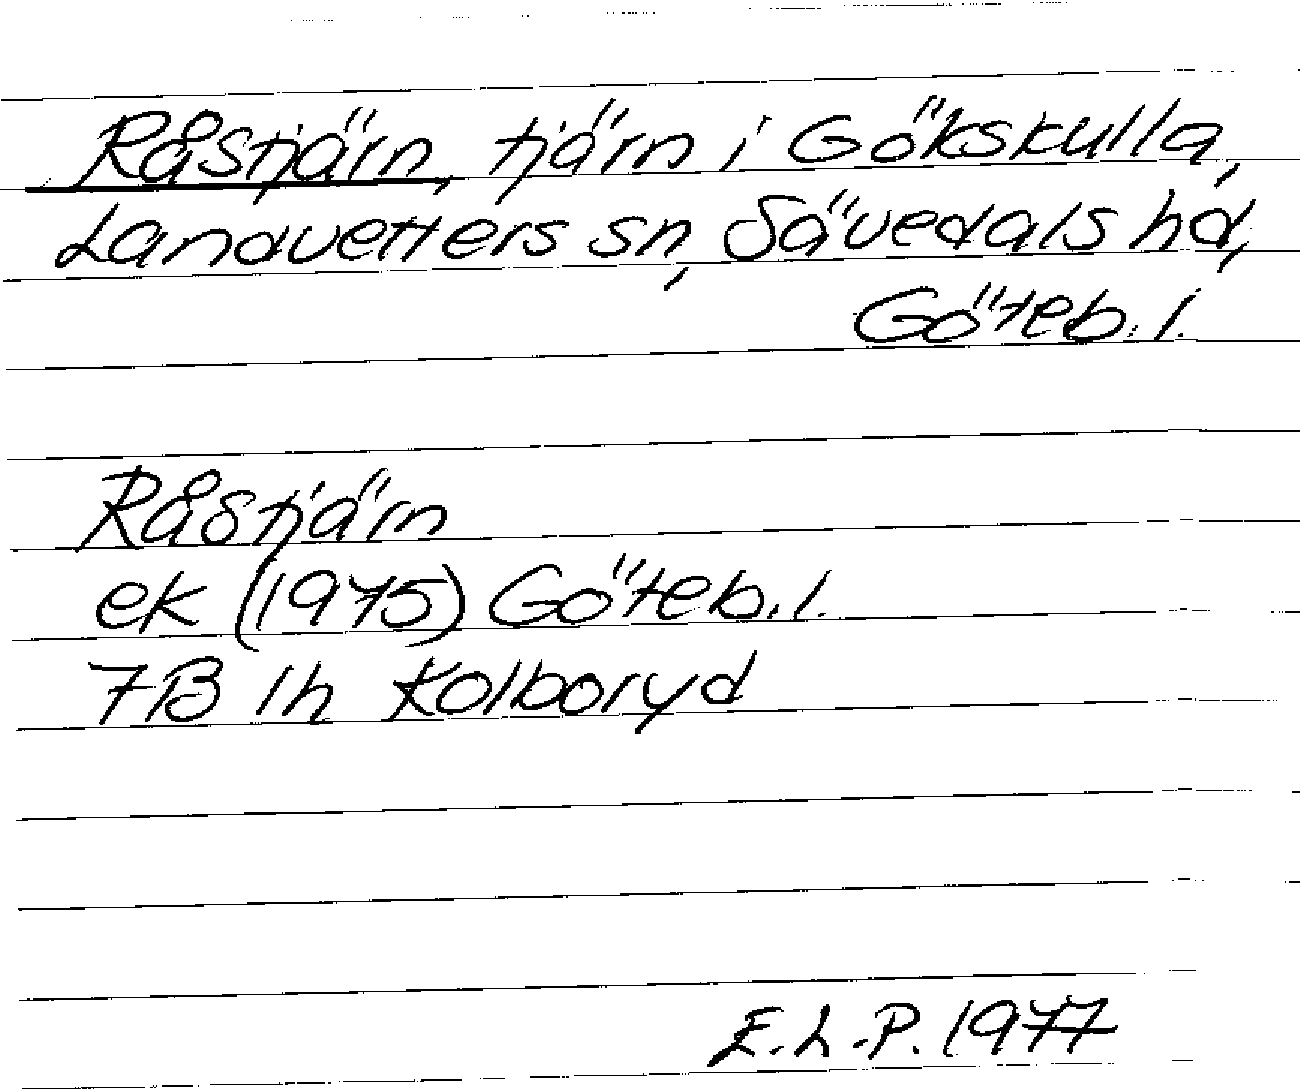 Råstjärn, tjärn i Gökskulla,
Landvetters sn, Sävedals hd,
Göteb. l.
Råstjärn
ek (1975) Göteb. l.
7B 1h Kolboryd
E.L-P. 1977